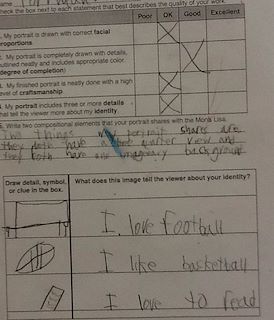 ame
heck the box next to each statement that best describes the quality of your work.
Poor OK Good Excellent
. My portrait is drawn with correct facial
roportions
. My portrait is completely drawn with details,
utlined neatly and includes appropriate color.
degree of completion)
. My finished portrait is neatly done with a high
evel of craftsmanship.
. My portrait includes three or more details
hat tell the viewer more about my identity.
. Write two compositional elements that your portrait shares with the Mona Lisa.
Two things my portrait shares are
they both have a three quarter view and
they both have an imaginary background
Draw detail, symbol,
or clue in the box.
What does this image tell the viewer about your identity?
I love football
I like basketball
I love to read